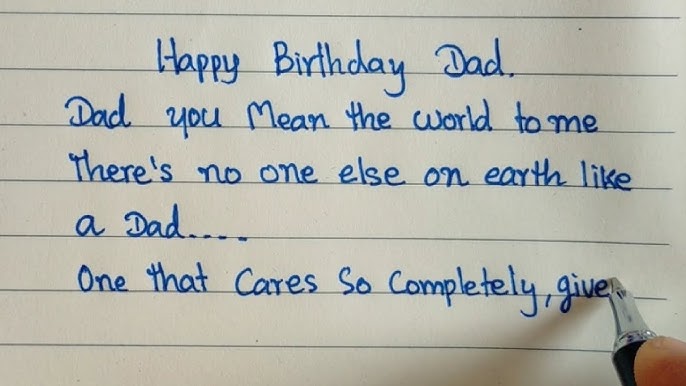 Happy Birthday Dad.
Dad you Mean the world to me
There's no one else on earth like
a Dad....
One that Cares So Completely, give